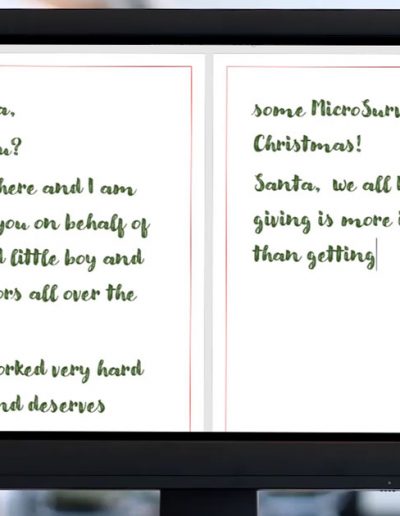 a,
u?
here and I am
you on behalf of
d little boy and
ors all over the
orked very hard
nd deserves
some MicroSurv
Christmas!
Santa, we all
giving is more
than getting